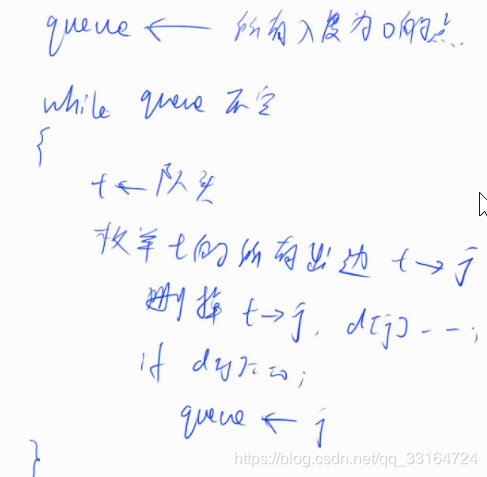 queue ← 所有入度为0的点.
while queue 不空
{
t ← 队头
枚举 t的所有出边 t → j
删掉 t → j, d[j]--;
if d[j]==0;
queue ← j
}
https://blog.csdn.net/qq_33164724